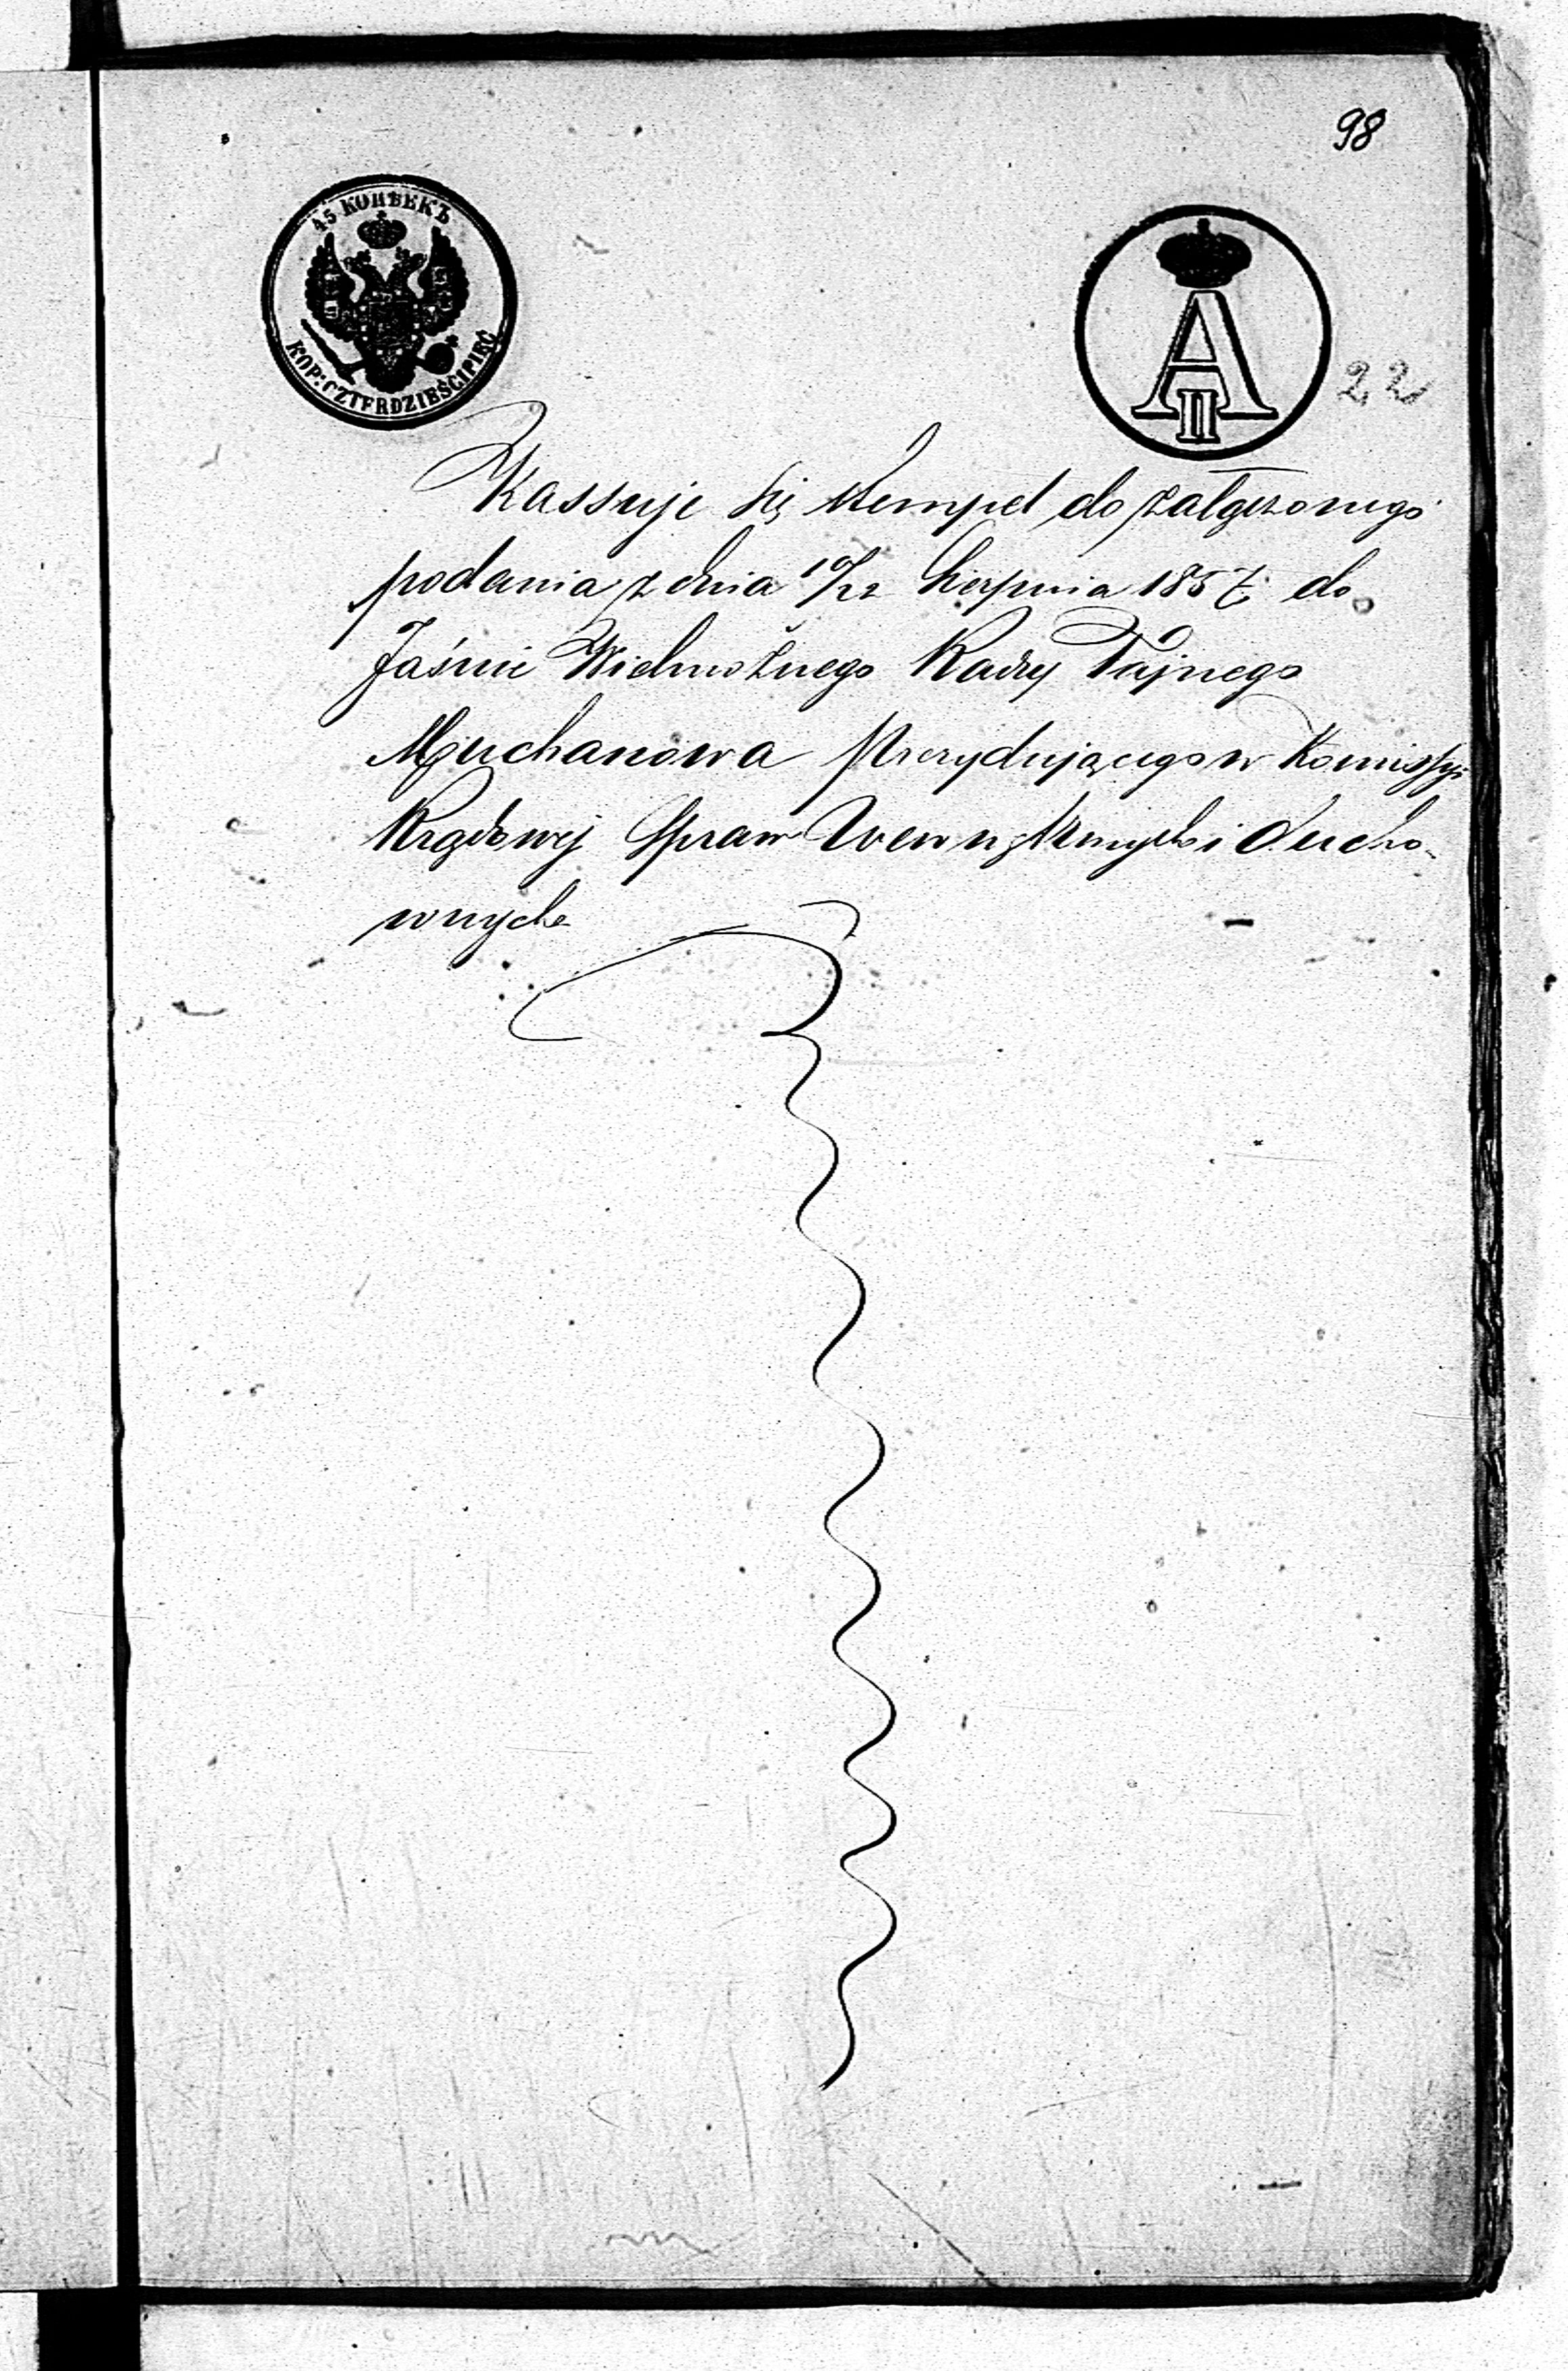 98
45 КОПѢЕКЪ
KOP: CZTERDZIEŚCI PIĘĆ
A II
22
Kassuje się stempel do załączonego
podania z dnia 10/22 Sierpnia 1857 do
Jaśnie Wielmożnego Radcy Tajnego
Muchanowa Prezydującego w Komissyi
Rządowej Spraw Wewnętrznych i Ducho-
wnych